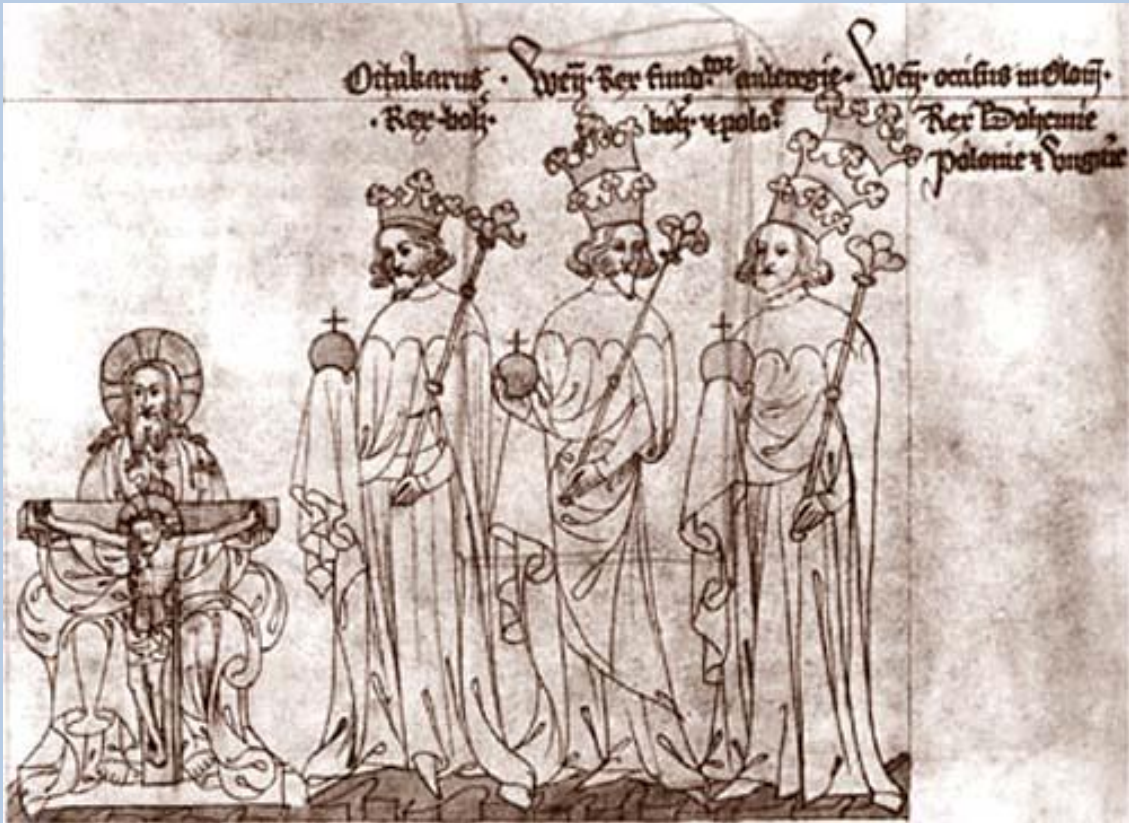 Ottakarus ·
· Rex boh·
Wen· Rex fund.tor auleregie·
boh· ⁊ polo.
Wen· occisus in Olom·
Rex Bohemie
polonie ⁊ Vngarie